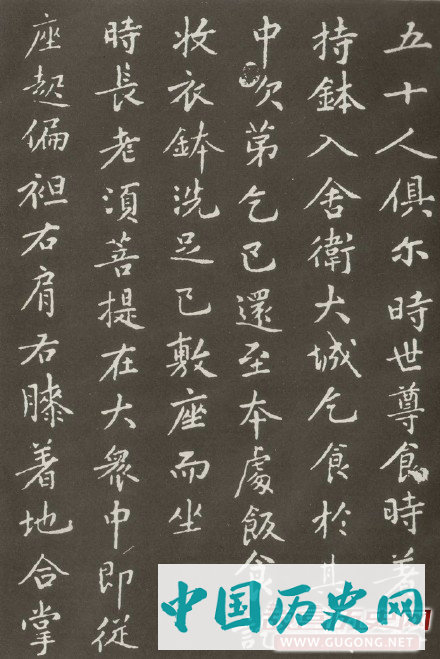 五十人俱尒時世尊食時著
持鉢入舍衛大城乞食於其
中次苐乞已還至本處飯食訖
收衣鉢洗足已敷座而坐
時長老須菩提在大衆中即從
座起偏袒右肩右膝着地合掌
中国历史网
WWW.GUGONG.NET